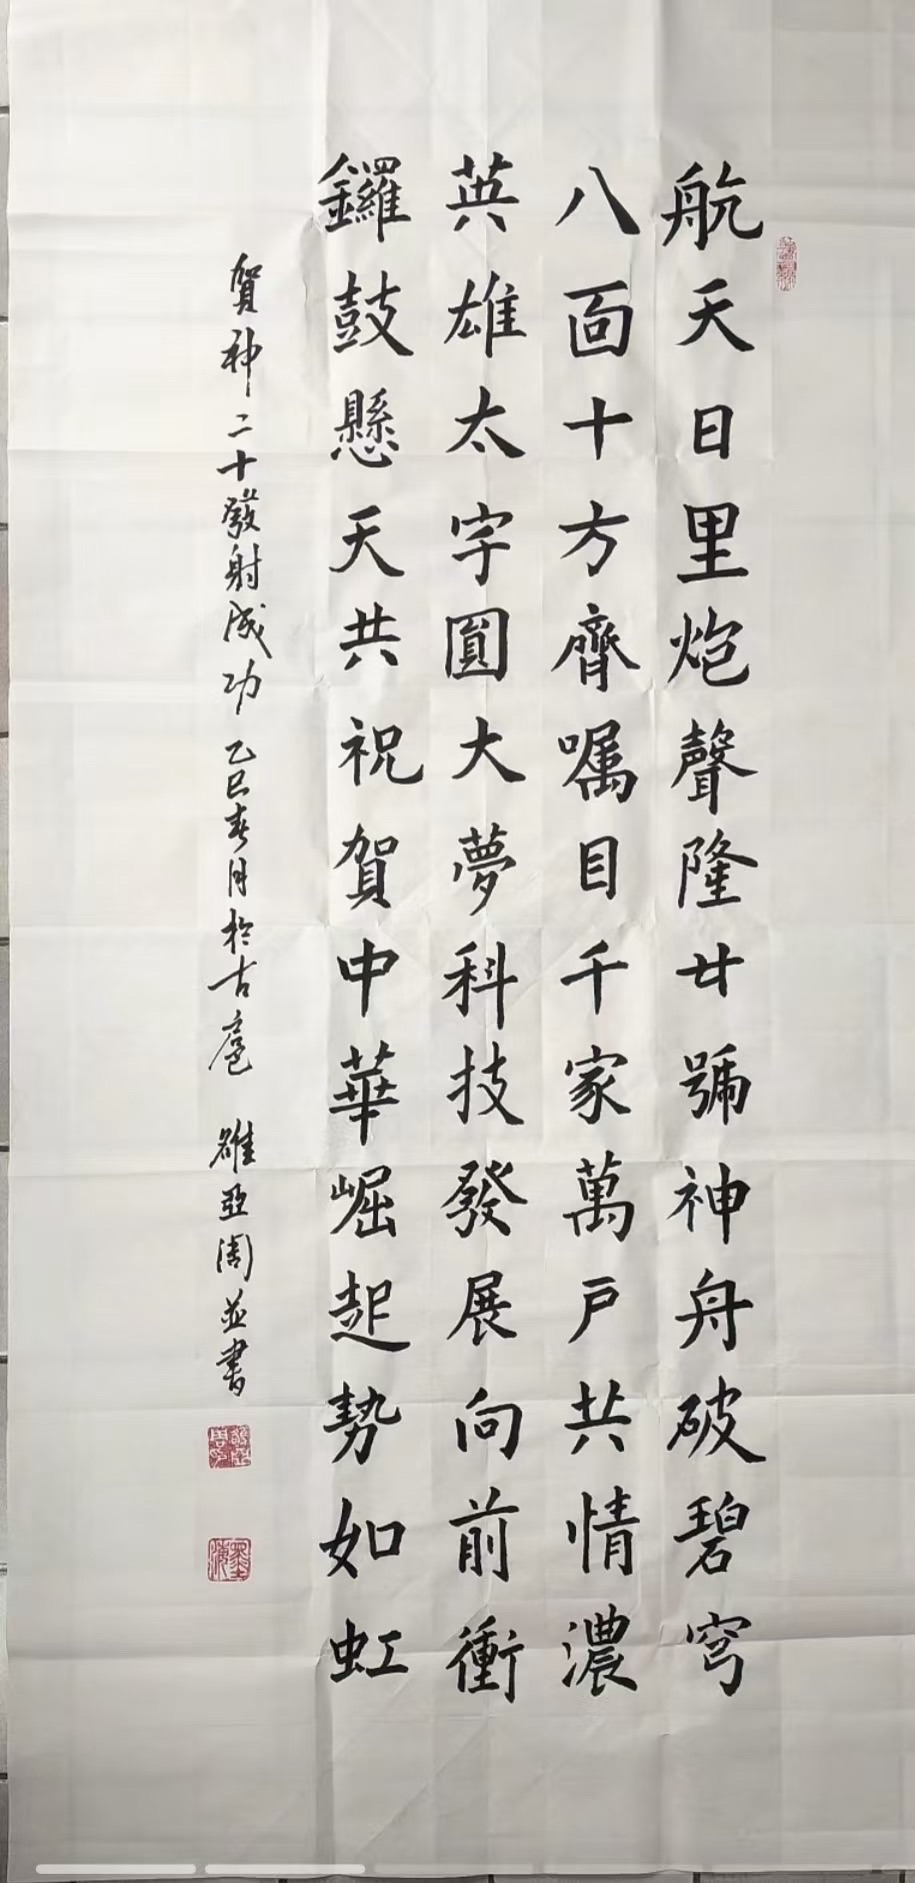 航天日里炮聲隆廿號神舟破碧穹
八面十方齊嘱目千家萬戶共情濃
英雄太字圓大夢科技發展向前衝
鑼鼓懸天共祝賀中華崛起勢如虹
賀神二十發射成功 乙巳春月於古 雒亞周並書